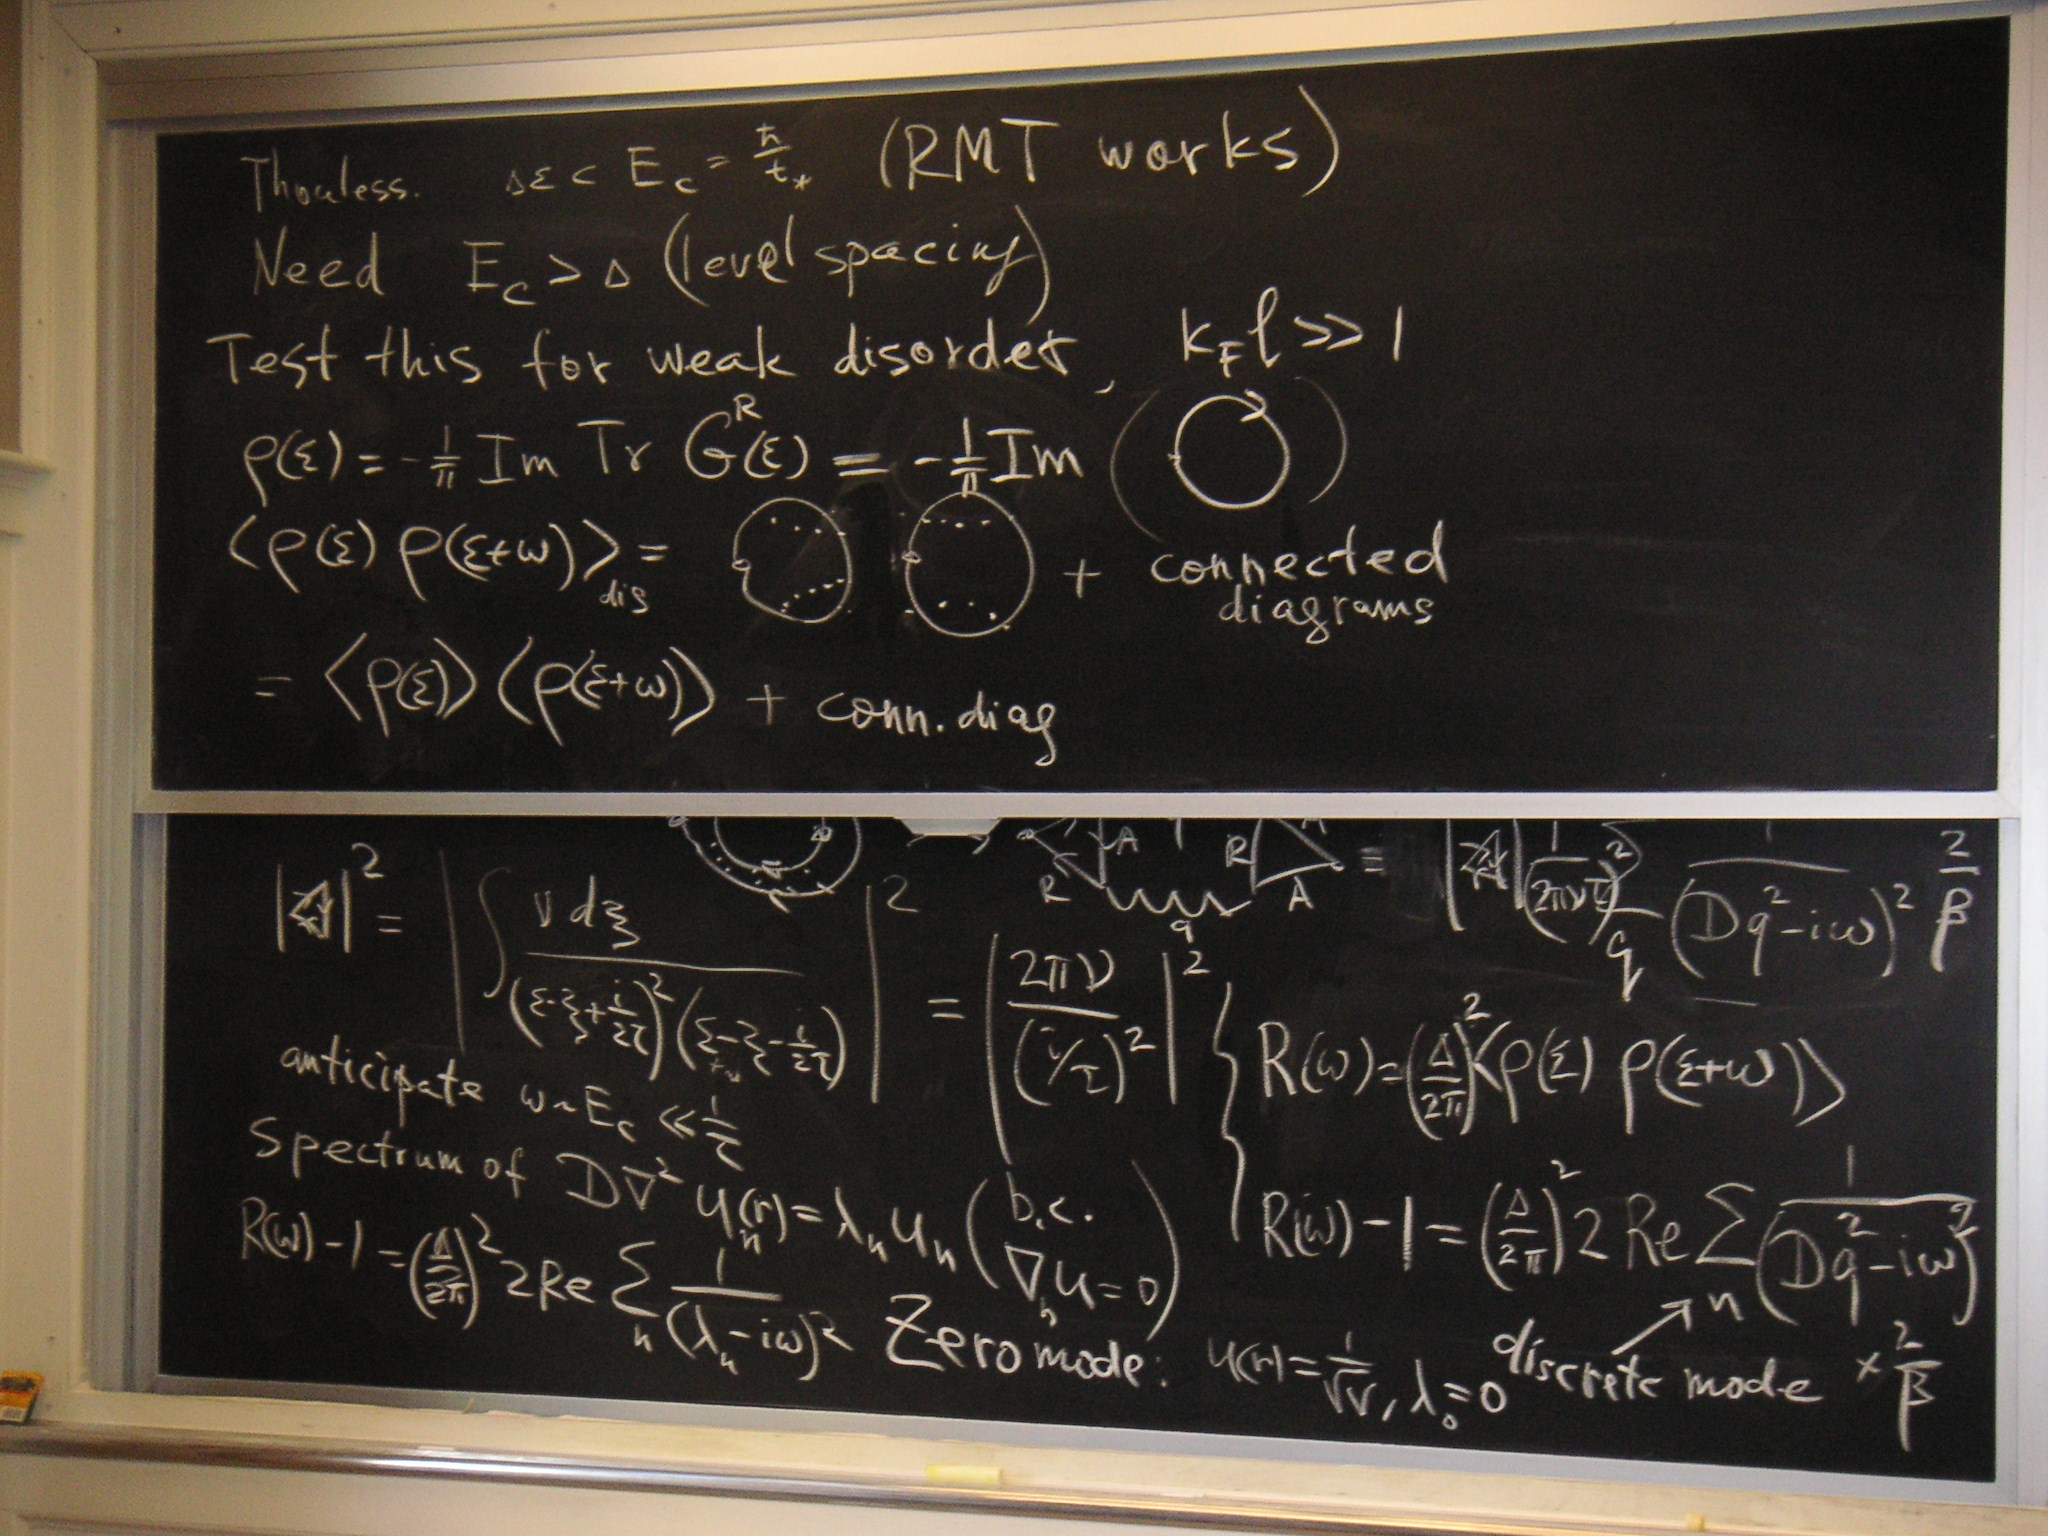 Thouless. Δε < E_c = ħ/t_* (RMT works)
Need E_c > Δ (level spacing)
Test this for weak disorder, k_F l >> 1
ρ(ε) = -1/π Im Tr G^R(ε) = -1/π Im ( )
<ρ(ε) ρ(ε+ω)>_dis = + connected diagrams
= <ρ(ε)> <ρ(ε+ω)> + conn. diag
R A q R A = 1/(2πντ)^2 Σ_q 1/(Dq^2 - iω)^2 2/β
| |^2 = | ∫ ν dξ / ((ε-ξ+i/2τ)^2 (ε-ξ-i/2τ)) |^2 = | 2πν/(i/τ)^2 |^2
R(ω) = (Δ/2π)^2 <ρ(ε) ρ(ε+ω)>
anticipate ω ~ E_c << 1/τ
Spectrum of D∇^2 u_n(r) = λ_n u_n (b.c. ∇_n u = 0)
R(ω) - 1 = (Δ/2π)^2 2 Re Σ_n 1/(Dq^2 - iω)^2
discrete mode × 2/β
R(ω) - 1 = (Δ/2π)^2 2 Re Σ_n 1/(λ_n - iω)^2
Zero mode: u(r) = 1/√V, λ_0 = 0